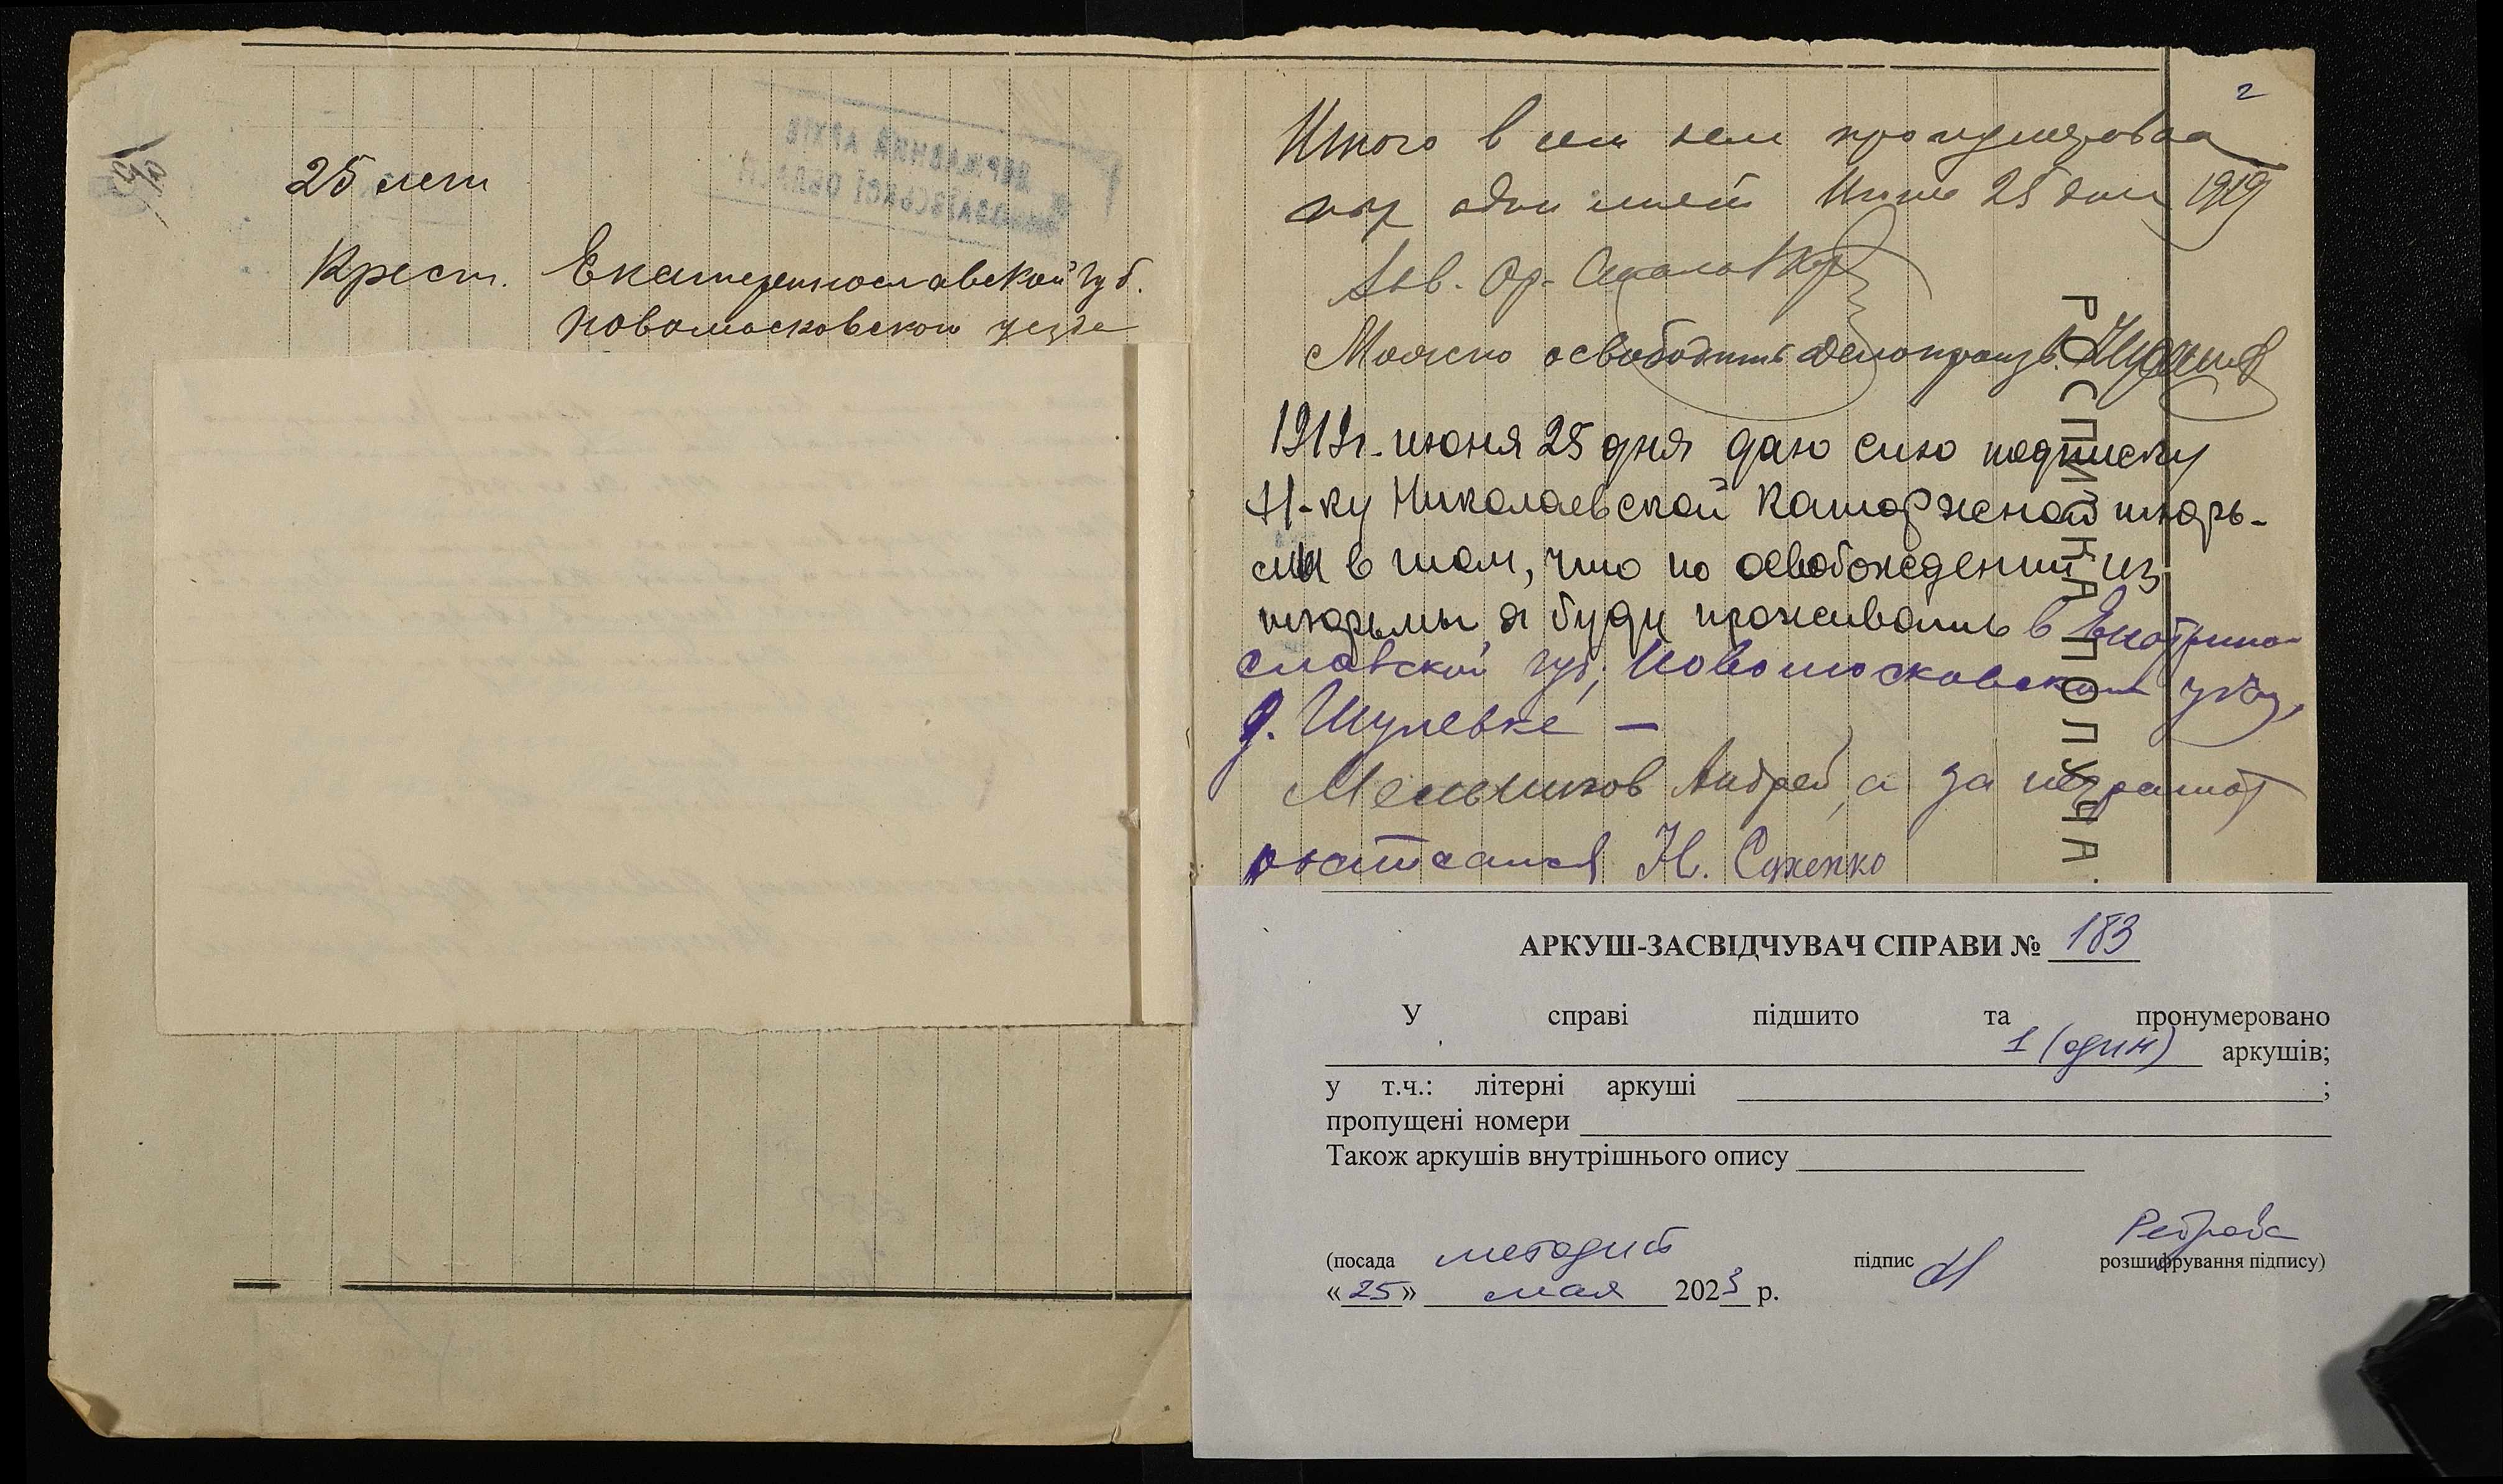 25 лет
Крест. Екатеринославской губ.
Новомосковского уезда
ДЕРЖАВНИЙ АРХІВ
МИКОЛАЇВСЬКОЇ ОБЛАСТІ
2
Итого в сем деле пронумерован
один лист Июня 25 дня 1919
Можно освободить Делопроизв.
1919г. июня 25 дня даю сию подписку
Н-ку Николаевской Каторжной тюрь-
мы в том, что по освобождении из
тюрьмы я буду проживать в Екатрино-
славской губ, Новомосковском уезд,
д. Шулевке —
Мельников Андрей, а за неграмот
росписался Н. Сухенко
РОСПИСКА ПОЛУЧА
АРКУШ-ЗАСВІДЧУВАЧ СПРАВИ № 183
У справі підшито та пронумеровано
1 (один) аркушів;
у т.ч.: літерні аркуші ;
пропущені номери
Також аркушів внутрішнього опису
(посада методист підпис розшифрування підпису)
«25» мая 2023 р.